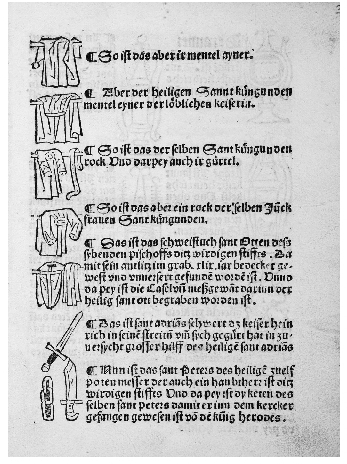 ¶ So ist das aber ir mentel ayner.
¶ Aber der heiligen Sannt küngunden
mentel eyner der löblichen keiserin.
¶ So ist das der selben Sant küngunden
rock. Vnd darpey auch ir gürtel.
¶ So ist das aber ein rock der selben Jück
frauen Sant küngunden.
¶ Das ist das schweistuch sant Otten dess
sebenden pischoffs ditz wirdigen stiffts. Da
mit sein antlitz im grab. lxix. iar bedecket ge
west vnd vnuersert gefunde wordē ist. Vnnd
da pey ist die Caseln meßgewāt darinn der
heilig sant ott begraben worden ist.
¶ Das ist sant adriās schwert dz keiser hein
rich in seinē streitñ vm̄ sich gegürt hat in zu
versycht grosser hilff des heiligē sant adriās
¶ Nun ist das sant Peters des heiligē zwelf
poten messer der auch ein haubtherr ist ditz
wirdigen stiffts Vnd da pey ist dy keten des
selben sant peters damit er inn dem kercker
gefangen gewesen ist vō dē küng herodes.